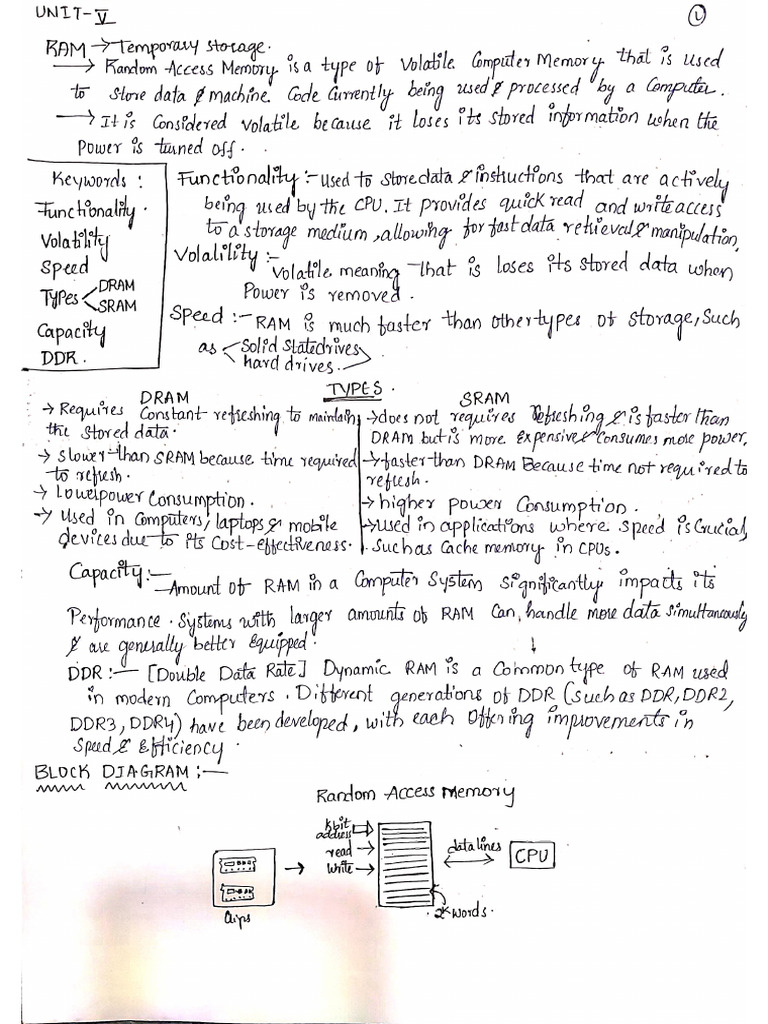 UNIT-V
1
RAM → Temporary storage.
→ Random Access Memory is a type of Volatile Computer Memory that is used
to store data & machine code currently being used & processed by a Computer.
→ It is Considered volatile because it loses its stored information when the
Power is turned off.
Keywords :
Functionality.
Volatility
Speed
Types < DRAM
SRAM
Capacity
DDR.
Functionality :- Used to store data & instuctions that are actively
being used by the CPU. It provides quick read and write access
to a storage medium, allowing for fast data retrieval & manipulation,
Volalility :-
Volatile meaning that is loses its stored data when
Power is removed.
Speed :- RAM is much faster than other types of storage, Such
as < Solid State drives
hard drives. >
TYPES.
DRAM
→ Requires Constant refreshing to maintain
the stored data.
→ Slower than SRAM because time required
to refresh.
→ Lower power Consumption.
→ Used in Computers, laptops & mobile
devices due to its Cost-effectiveness.
SRAM
→ does not requires Refreshing & is faster than
DRAM but is more expensive & Consumes more power.
→ faster than DRAM Because time not required to
refresh.
→ higher power Consumption.
→ used in applications where speed is Crucial,
Such as Cache memory in CPUs.
Capacity :- Amount of RAM in a Computer System significantly impacts its
Performance. Systems with larger amounts of RAM Can, handle more data simultaneously
& are generally better equipped.
DDR :- [Double Data Rate] Dynamic RAM is a Common type of RAM used
in modern Computers. Different generations of DDR (Such as DDR, DDR2,
DDR3, DDR4) have been developed, with each Offering improvements in
Speed & Efficiency.
BLOCK DIAGRAM :-
Random Access Memory
K bit
address
read
write
data lines
CPU
2K words.